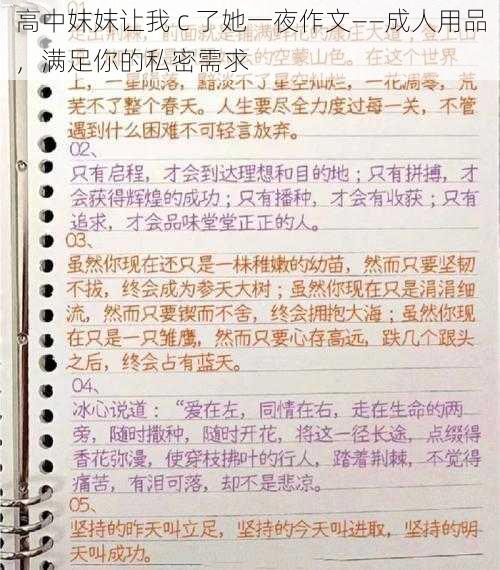 高中妹妹让我ｃ了她一夜作文——成人用品
，满足你的私密需求
上，一星陨落，黯淡不了星空灿烂，一花凋零，荒
芜不了整个春天。人生要尽全力度过每一关，不管
遇到什么困难不可轻言放弃。
02、
只有启程，才会到达理想和目的地；只有拼搏，才
会获得辉煌的成功；只有播种，才会有收获；只有
追求，才会品味堂堂正正的人。
03、
虽然你现在还只是一株稚嫩的幼苗，然而只要坚韧
不拔，终会成为参天大树；虽然你现在只是涓涓细
流，然而只要锲而不舍，终会拥抱大海；虽然你现
在只是一只雏鹰，然而只要心存高远，跌几个跟头
之后，终会占有蓝天。
04、
冰心说道：“爱在左，同情在右，走在生命的两
旁，随时撒种，随时开花，将这一径长途，点缀得
香花弥漫，使穿枝拂叶的行人，踏着荆棘，不觉得
痛苦，有泪可落，却不是悲凉。
05、
坚持的昨天叫立足，坚持的今天叫进取，坚持的明
天叫成功。